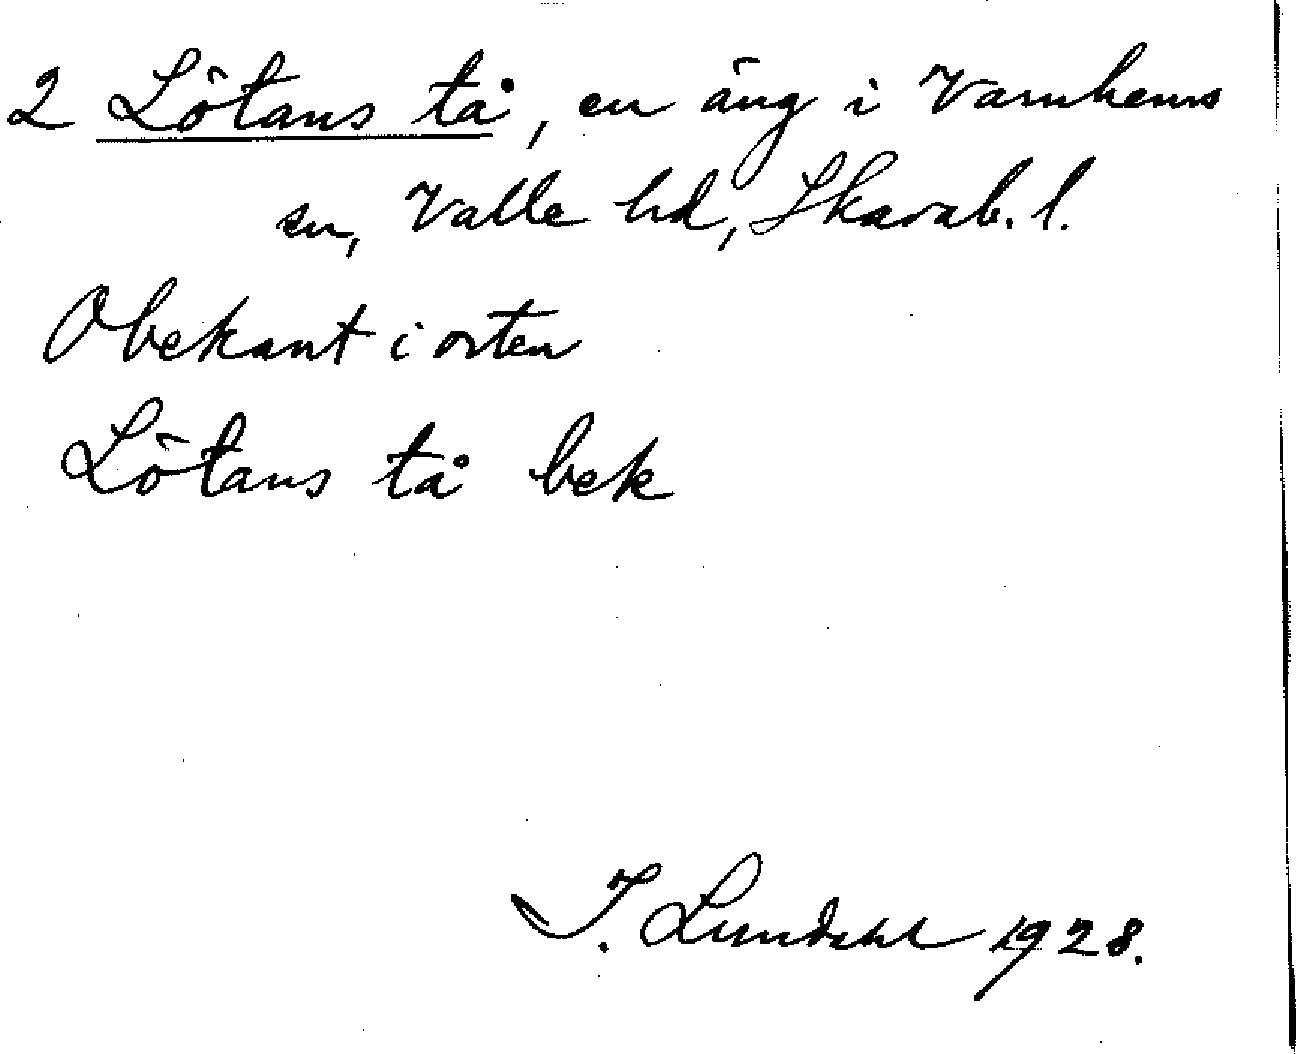 2 Lötans tå, en äng i Varnhems
sn, Valle hd, Skarab. l.
Obekant i orten
Lötans tå bek
I. Lundahl 1928.